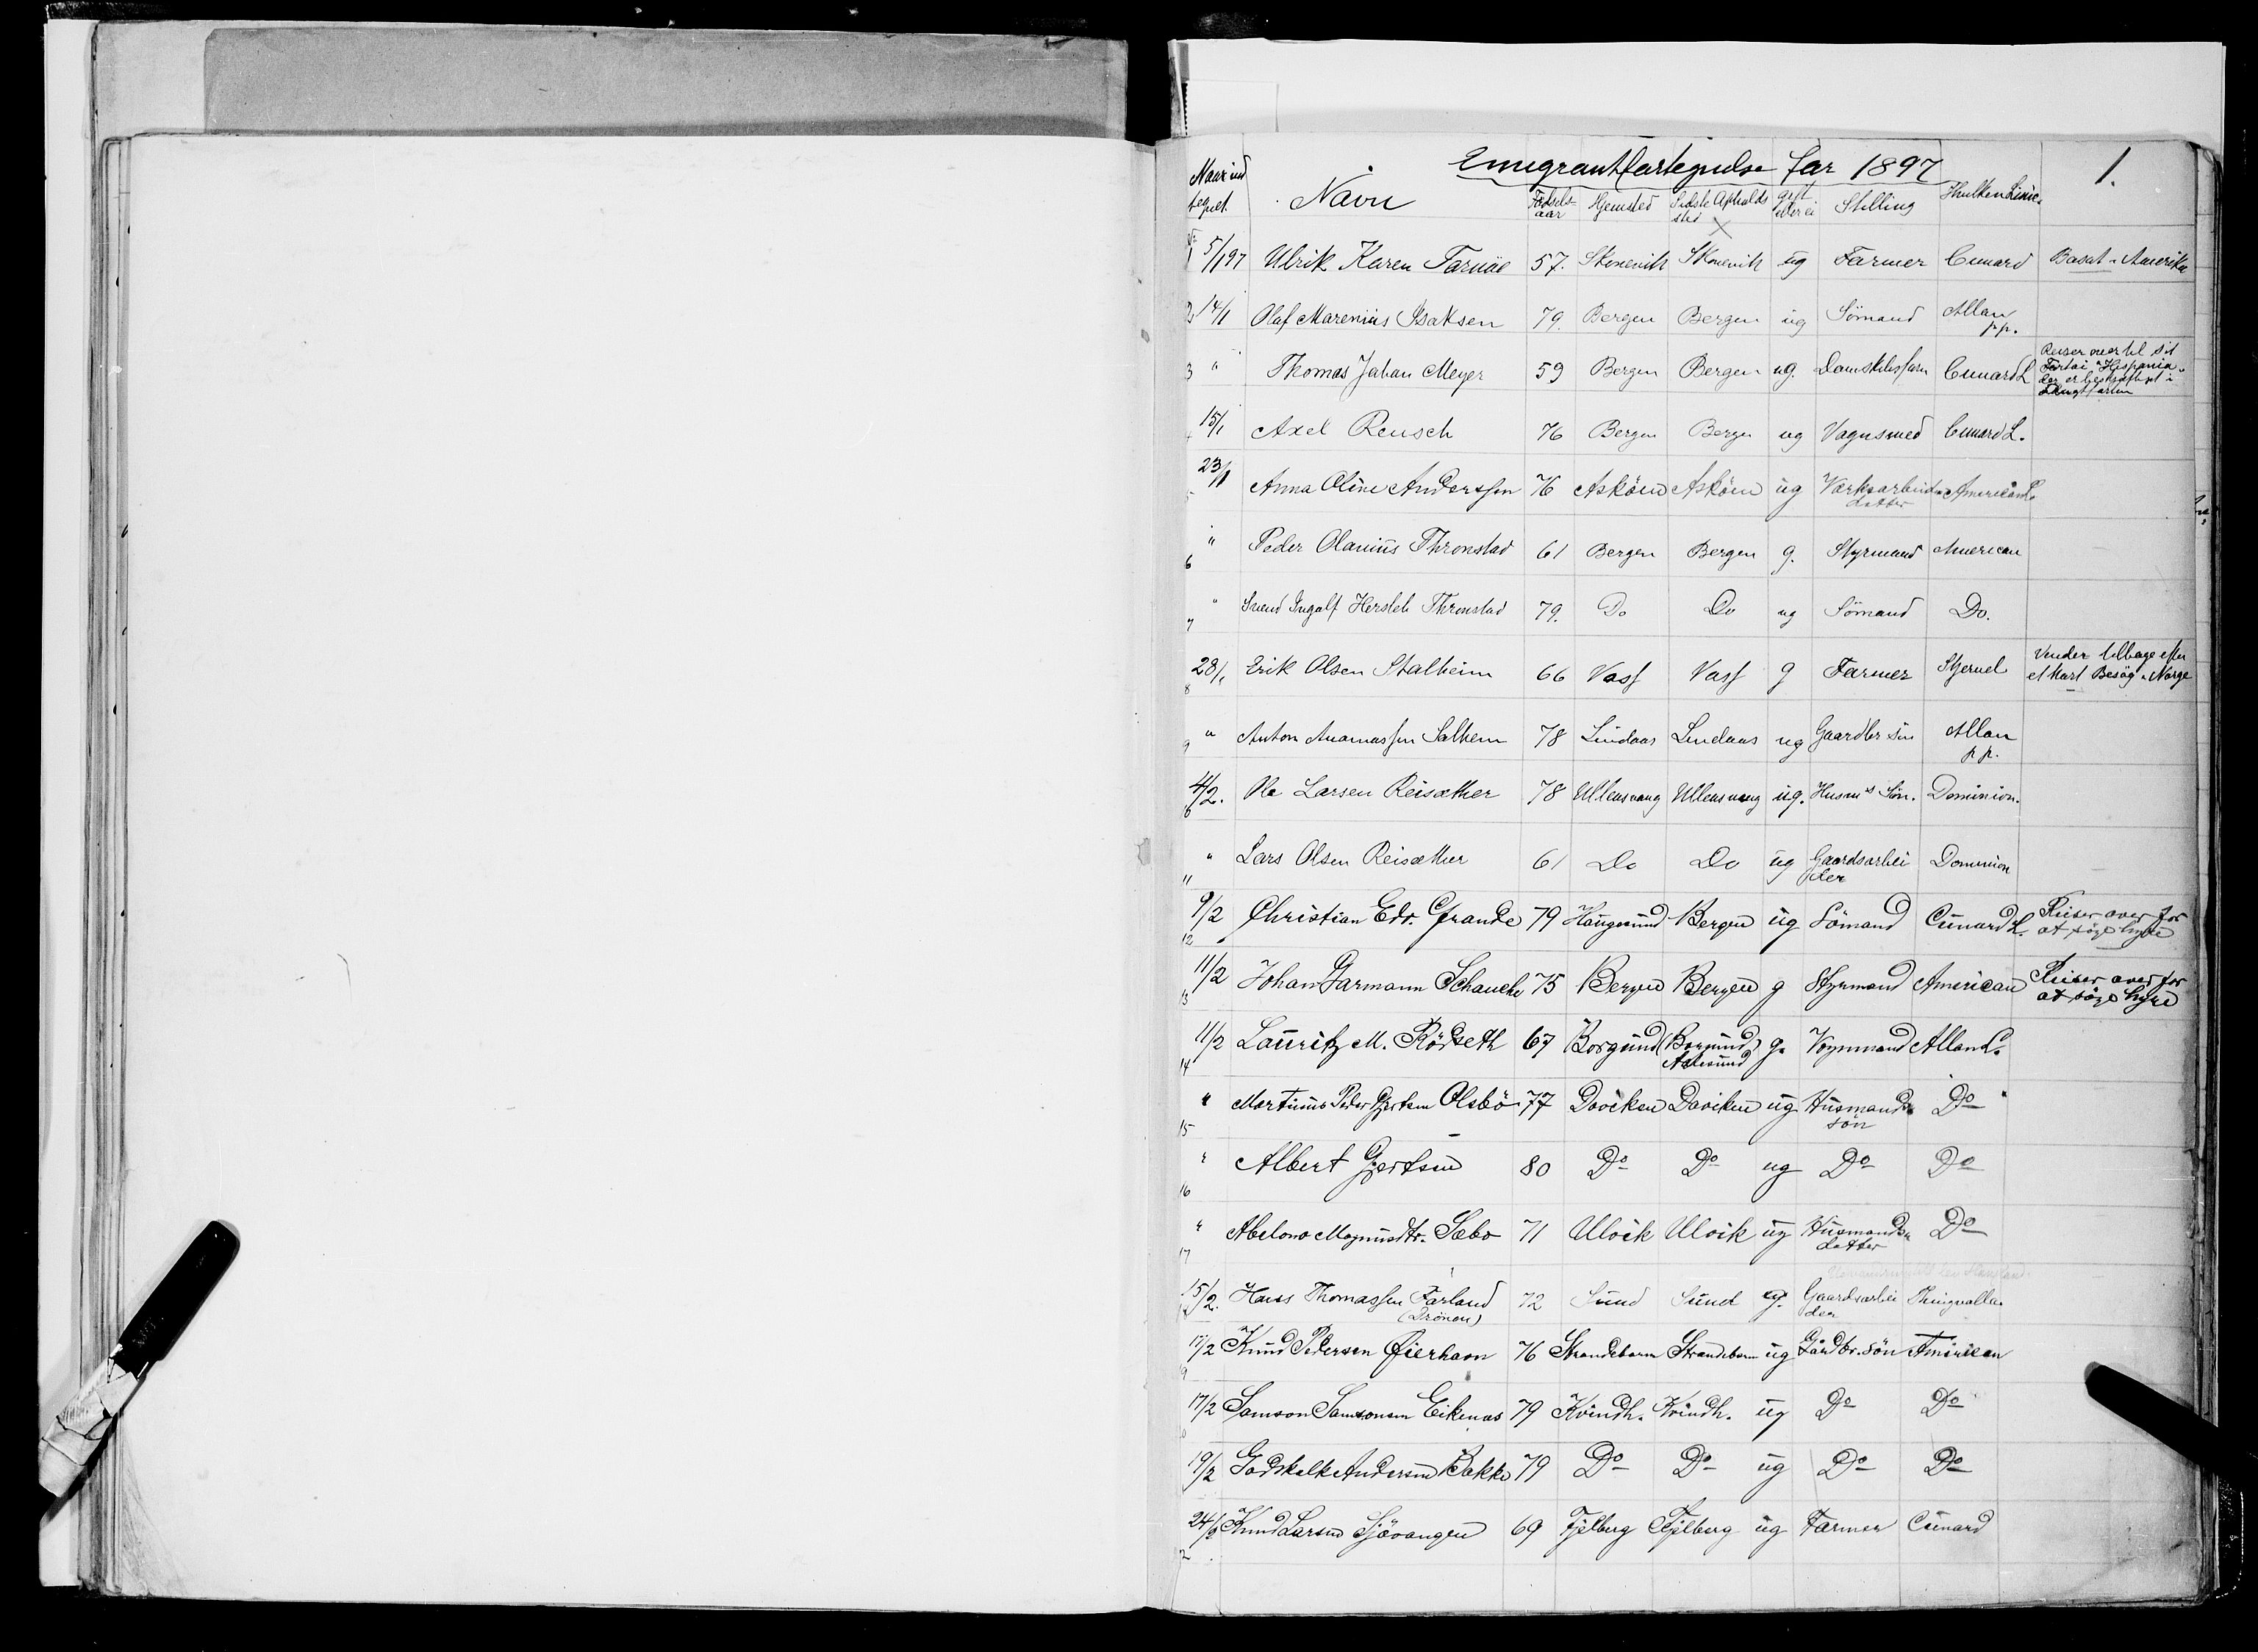 Emigrantfortegnelse for 1897 1.
Naar ind tegnet. Navn Fødsels-aar Hjemsted Sidste Opholds sted Gift eller ei Stilling Hvilken Linie.
1 5/1 97 Ulrik Karen Tarnäe 57. Skonevik Skonevik ug Farmer Cunard Bosat i Amerika
2 14/1 Olaf Marenius Isaksen 79. Bergen Bergen ug Sömand Allan pp.
3 " Thomas Johan Meyer 59 Bergen Bergen ug. Cunard L Reiser over til sit Fartøi "Hispania" der er beskjæftiget i Frugtfarten
4 15/1 Axel Reusch 76 Bergen Bergen ug Vognsmed Cunard L.
5 23/1 Anna Oline Anderssen 76 Asköen Asköen ug Værksarbeider datter American L.
6 " Peder Olanius Thronstad 61 Bergen Bergen g. Styrmand American
7 " Svend Ingolf Hersleb Thronstad 79. Do Do ug Sömand Do.
8 28/1 Erik Olsen Stalheim 66 Voss Voss g Farmer Stjernel Vender tilbage efter et kort Besög i Norge
9 " Anton Salhem 78 Lindaas Lindaas ug Gaardbr sön Allan pp.
4/2. Ole Larsen Reisæther 78 Ullensvang Ullensvang ug. Husm's Sön. Dominion.
11 " Lars Olsen Reisæther 61 Do Do ug Gaardsarbei der Dominion
12 9/2 Christian Edv. Grande 79 Haugesund Bergen ug Sömand Cunard L. Reiser over for at söge hyre
13 11/2 Johan Garmann Schanche 75 Bergen Bergen g Styrmand American Reiser over for at söge hyre
14 11/2 Lauritz M. Rödseth 67 Borgund (Borgund) Aalesund g. Vognmand Allan L.
15 " Martinus Peder Gjertsen Olsbö 77 Daviken Daviken ug Husmands sön Do "
16 " Albert Gjertsen 80 Do Do ug Do Do
17 " Abelone Magnusdtr. Sæbo 71 Ulvik Ulvik ug Husmands datter Do
15/2. Hans Thomassen Forland (Drönen) 72 Sund Sund g. Gaardsarbei der Thingvalla
17/2 Knud Pedersen Øierhavn 76 Strandebarm Strandebarm ug Gaardbr. sön American
17/2 Samson Samsonsen Eikenæs 79 Kvindh. Kvindh. ug Do Do
19/2 Godskalk Andersen Bakke 79 Do Do ug Do Do
24/2 Knud Larsen Sjövangen 69 Fjelberg Fjelberg ug Farmer Cunard